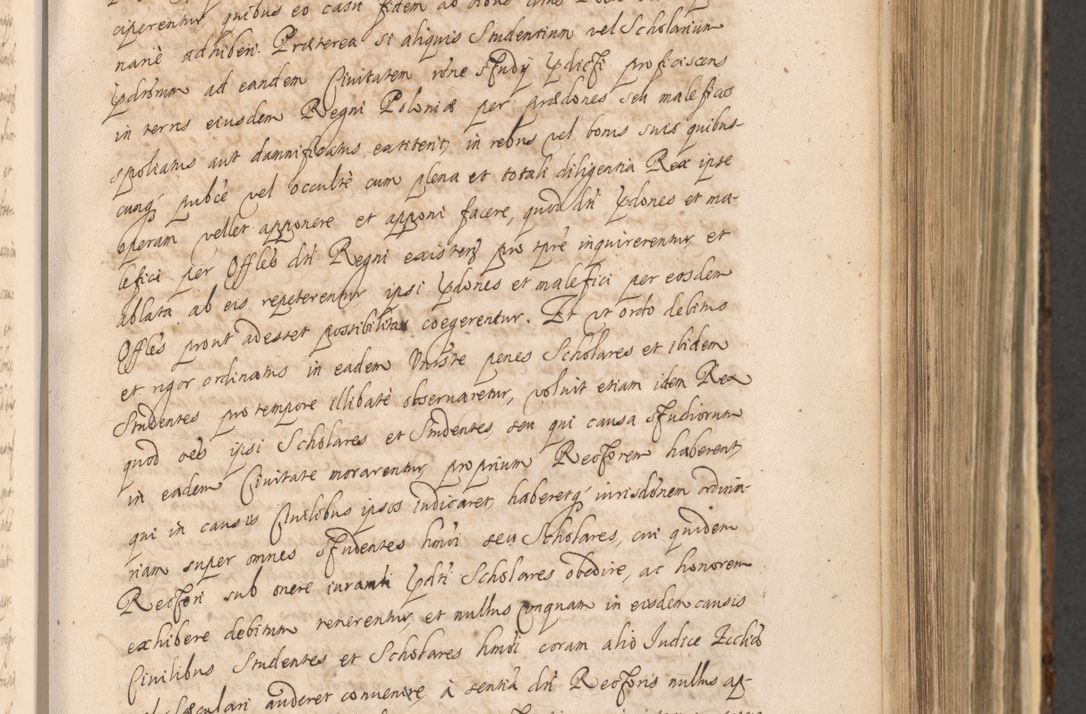 narie adhiberi. Præterea si aliquis Studentium vel Scholarium
pdrorum ad eandem Civitatem rone studij pdicti proficiscens
in terris eiusdem Regni Poloniæ per prædones seu maleficos
spoliatus aut damnificatus extiterit, in rebus vel bonis suis quibus-
cunq; pubce vel occultè cum plena et totali diligentia Rex ipse
operam vellet apponere et apponi facere, quod dti pdones et ma-
lefici per Offles dti Regni existen pro tpre inquirerentur et
ablata ab eis repeterentur ipsi pdones et malefici per eosdem
Offles prout adesset possibilitas coegerentur. Et ut ordo debitus
et rigor ordinatus in eadem Unirste penes Scholares et ibidem
Studentes pro tempore illibatè observaretur, voluit etiam idem Rex
quod oes ipsi Scholares et Studentes seu qui causa studiorum
in eadem Civitate morarentur proprium Rectorem haberent,
qui in causis Civilibus ipsos iudicaret, haberetq; iurisdonem ordina-
riam super omnes studentes hmoi seu Scholares, cui quidem
Rectori sub onere iuramti pdti Scholares obedire, ac honorem
exhibere debitum tenerentur, et nullus unquam in eisdem causis
Civilibus Studentes et Scholares hmoi coram alio Iudice Ecclico
vel Sæculari auderet convenire, à sententia dti Rectoris nullus ap-